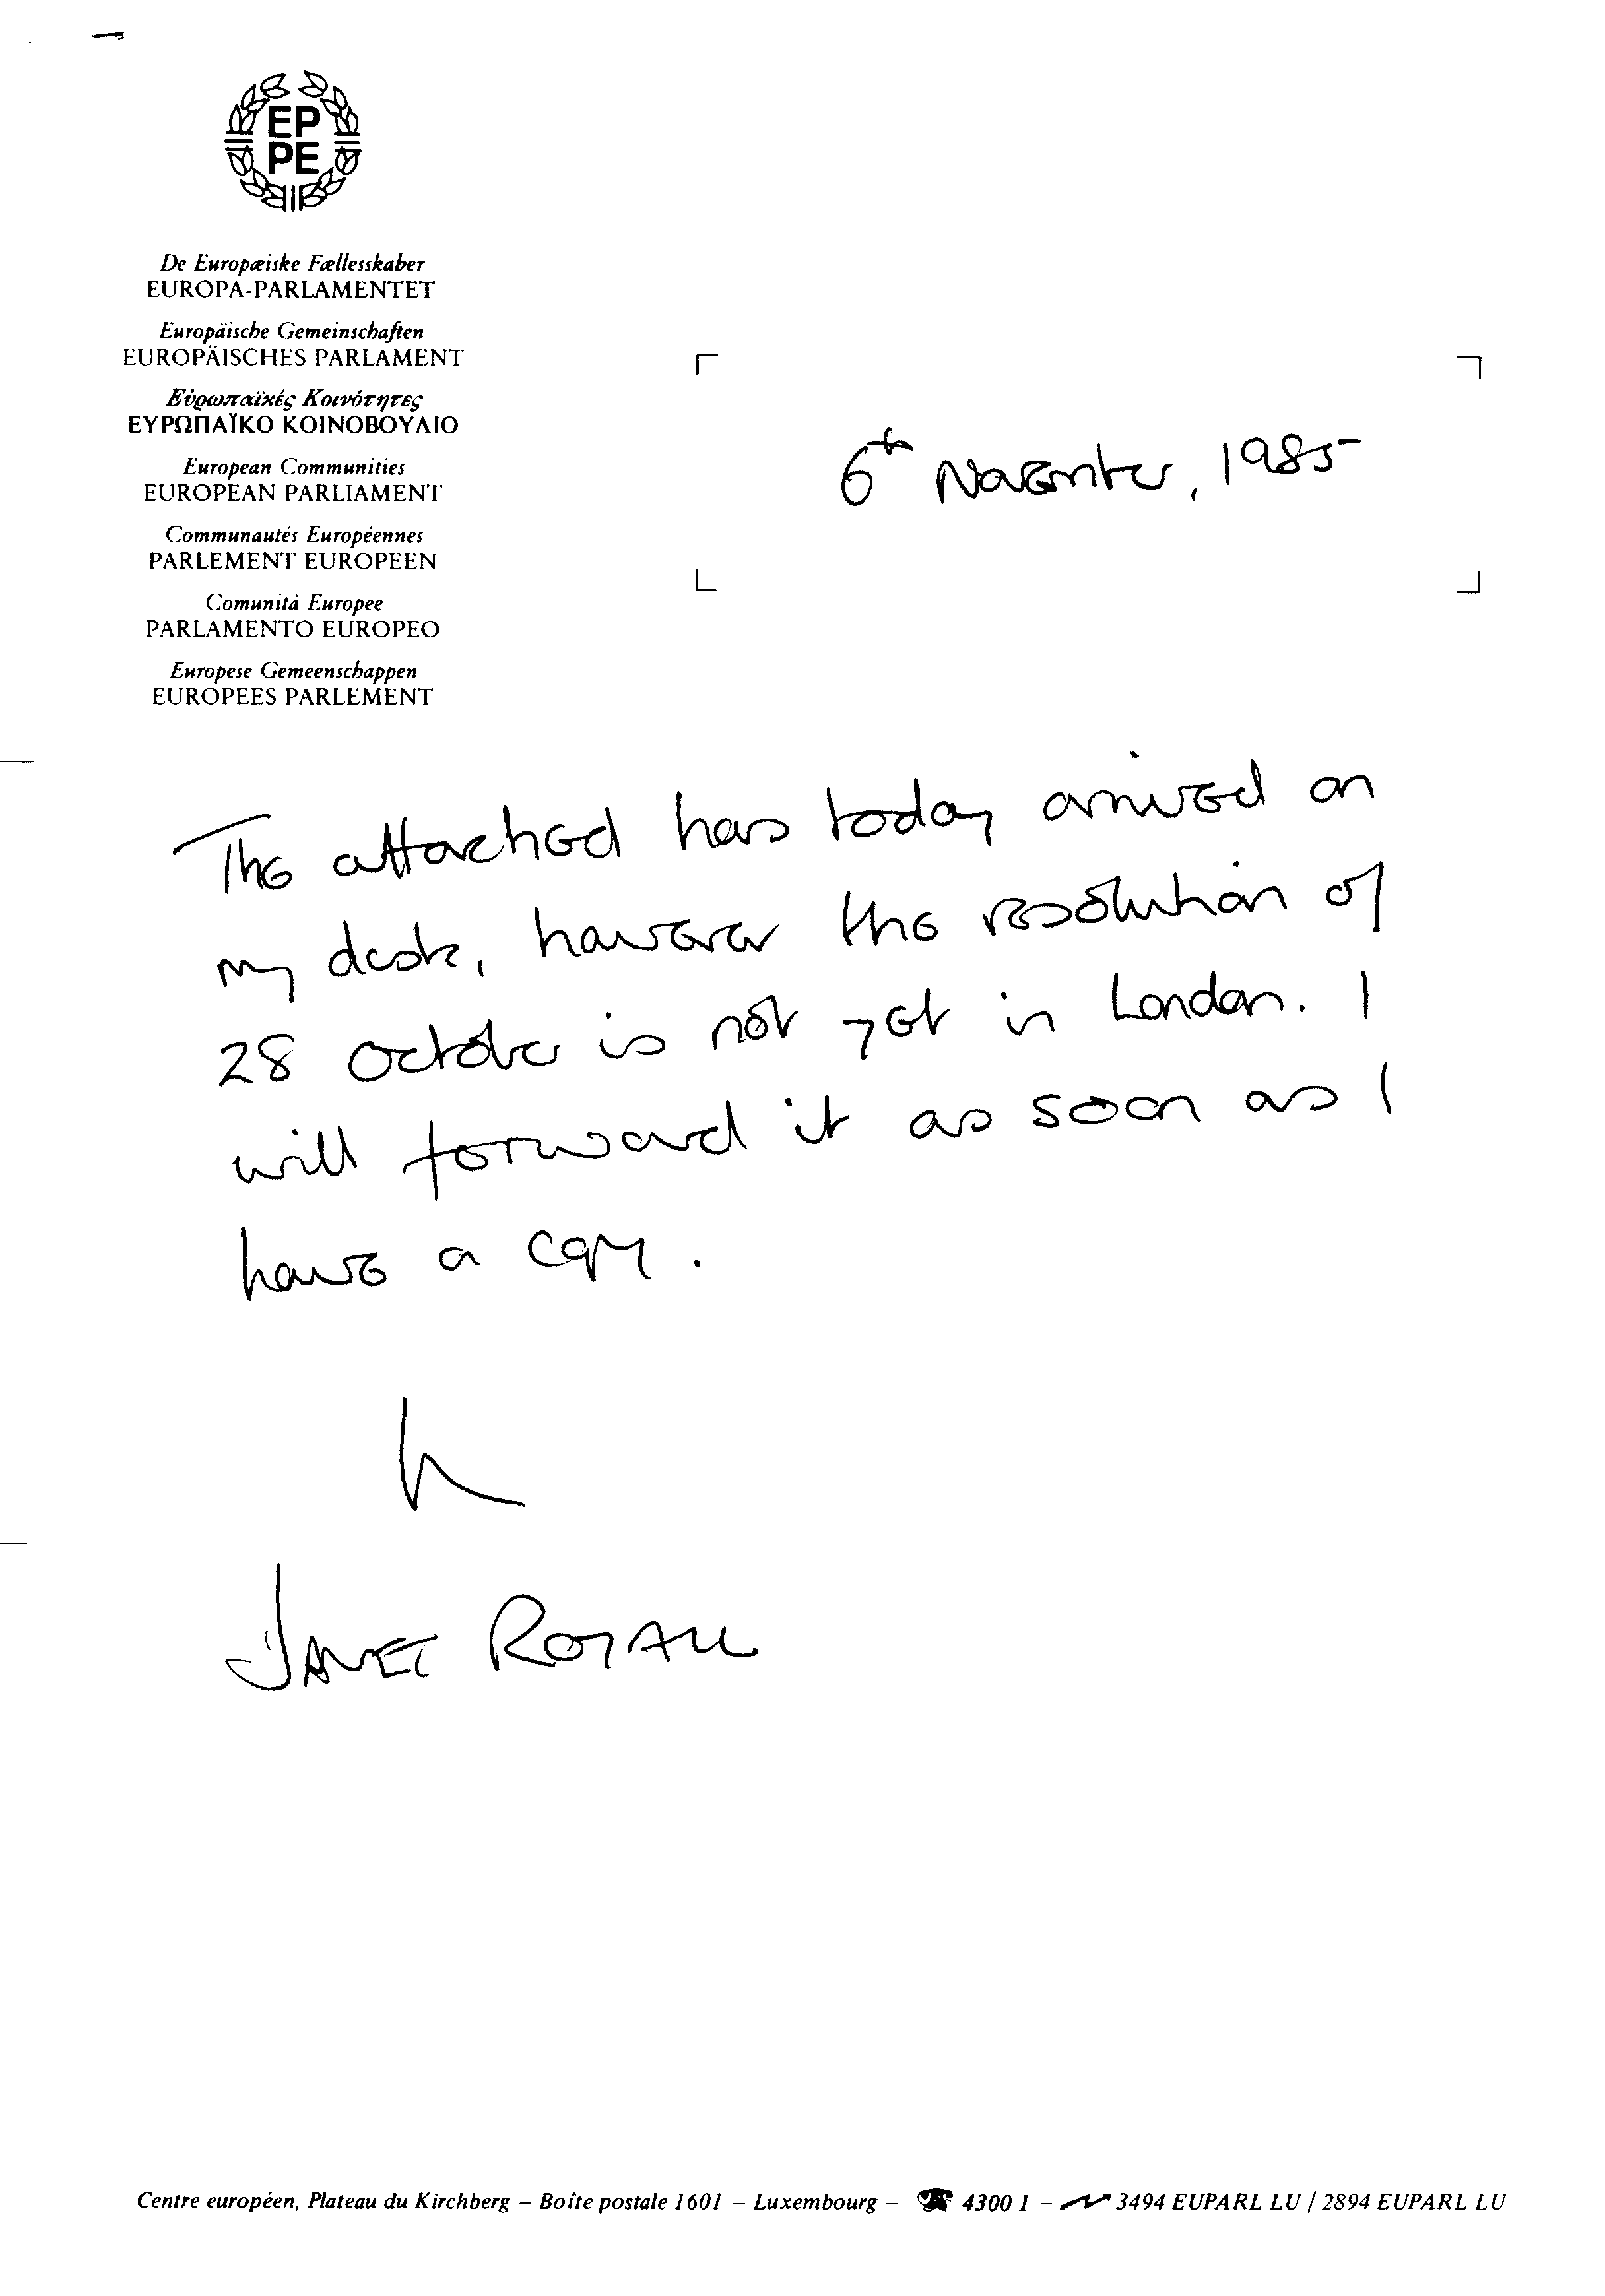 EP
PE
De Europæiske Fællesskaber
EUROPA-PARLAMENTET
Europäische Gemeinschaften
EUROPÄISCHES PARLAMENT
Εὐρωπαϊκές Κοινότητες
ΕΥΡΩΠΑΪΚΟ ΚΟΙΝΟΒΟΥΛΙΟ
European Communities
EUROPEAN PARLIAMENT
Communautés Européennes
PARLEMENT EUROPEEN
Comunità Europee
PARLAMENTO EUROPEO
Europese Gemeenschappen
EUROPEES PARLEMENT
6th November, 1985
The attached has today arrived on
my desk, however the resolution of
28 October is not yet in London. I
will forward it as soon as I
have a copy.
JANET ROYALL
Centre européen, Plateau du Kirchberg – Boîte postale 1601 – Luxembourg – ☎ 4300 1 – 3494 EUPARL LU / 2894 EUPARL LU